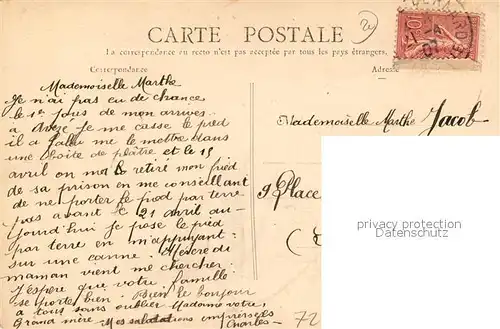 CARTE POSTALE
La correspondance au recto n'est pas acceptée par tous les pays étrangers.
Correspondance
Adresse
Mademoiselle Marthe
Je n'ai pas eu de chance
le 1er jour de mon arrivée
à je me casse le pied
il a fallu le mettre dans
une boîte de plâtre et le 15
avril on m'a retiré mon pied
de sa prison en me conseillant
de ne porter le pied par terre
pas avant le 21 avril au-
jourd'hui je pose le pied
par terre en m'appuyant
sur une canne. Mercredi
maman vient me chercher.
J'espère que votre famille
se porte bien. Bien le bonjour
à tous sans oublier Madame votre
Grand mère. Mes salutations empressées
Charles
Mademoiselle Marthe Jacob
9 Place
privacy protection
Datenschutz
72
10